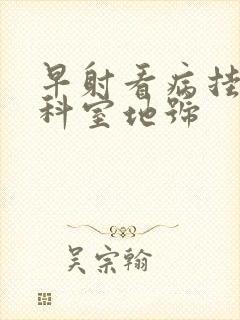 早射看病挂
科室地号
吴宗翰